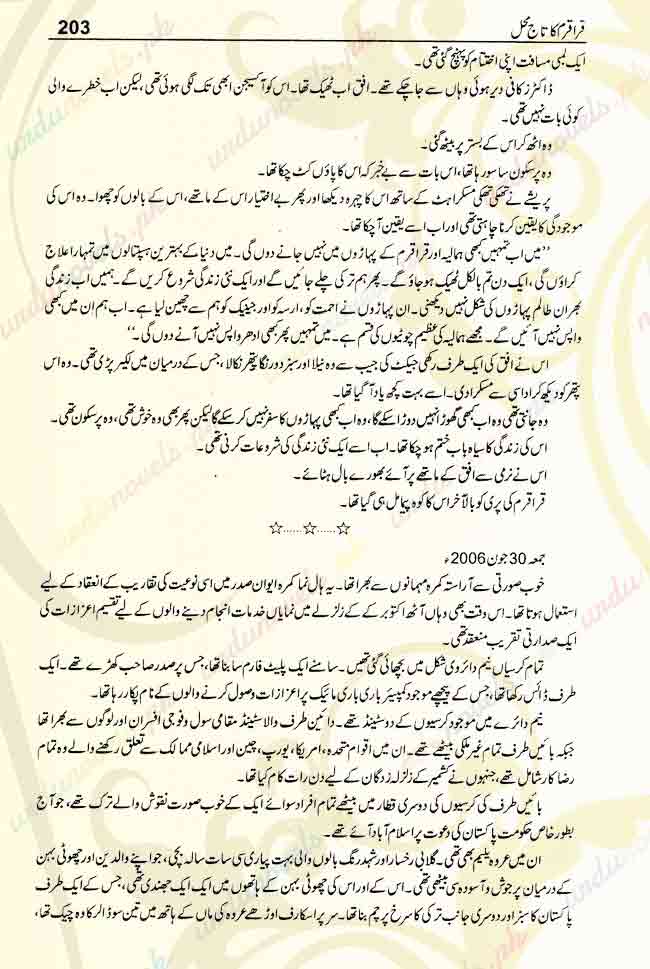 قراقرم کا تاج محل
203
ایک لمبی مسافت اپنی اختتام کو پہنچ گئی تھی۔
ڈاکٹرز کافی دیر ہوئی وہاں سے جا چکے تھے۔ افق اب ٹھیک تھا۔ اس کو آکسیجن ابھی تک لگی ہوئی تھی، لیکن اب خطرے والی
کوئی بات نہیں تھی۔
وہ اٹھ کر اس کے بستر پر بیٹھ گئی۔
وہ پرسکون سا سو رہا تھا، اس بات سے بے خبر کہ اس کا پاؤں کٹ چکا تھا۔
پریشے نے تھکی تھکی مسکراہٹ کے ساتھ اس کا چہرہ دیکھا اور پھر بے اختیار اس کے ماتھے، اس کے بالوں کو چھوا۔ وہ اس کی
موجودگی کا یقین کرنا چاہتی تھی اور اب اسے یقین آ چکا تھا۔
’’میں اب تمہیں کبھی ہمالیہ اور قراقرم کے پہاڑوں میں نہیں جانے دوں گی۔ میں دنیا کے بہترین ہسپتالوں میں تمہارا علاج
کراؤں گی، ایک دن تم بالکل ٹھیک ہو جاؤ گے۔ پھر ہم ترکی چلے جائیں گے اور ایک نئی زندگی شروع کریں گے۔ ہمیں اب زندگی
بھر ان ظالم پہاڑوں کی شکل نہیں دیکھنی۔ ان پہاڑوں نے احمت کو، ارسہ کو اور جینیک کو ہم سے چھین لیا ہے۔ اب ہم ان میں کبھی
واپس نہیں آئیں گے۔ مجھے ہمالیہ کی عظیم چوٹیوں کی قسم ہے۔ میں تمہیں پھر کبھی ادھر واپس نہیں آنے دوں گی۔‘‘
اس نے افق کی ایک طرف رکھی جیکٹ کی جیب سے وہ نیلا اور سبز دورنگا پتھر نکالا، جس کے درمیان میں لکیر پڑی تھی۔ وہ اس
پتھر کو دیکھ کر اداسی سے مسکرا دی۔ اسے بہت کچھ یاد آ گیا تھا۔
وہ جانتی تھی وہ اب کبھی گھوڑا نہیں دوڑا سکے گا، وہ اب کبھی پہاڑوں کا سفر نہیں کر سکے گا لیکن پھر بھی وہ خوش تھی، وہ پرسکون تھی۔
اس کی زندگی کا سیاہ باب ختم ہو چکا تھا۔ اب اسے ایک نئی زندگی کی شروعات کرنی تھی۔
اس نے نرمی سے افق کے ماتھے پر آئے بھورے بال ہٹائے۔
قراقرم کی پری کو بالآخر اس کا کوہ پیما مل ہی گیا تھا۔
☆......☆......☆
جمعہ 30 جون 2006ء
خوب صورتی سے آراستہ کمرہ مہمانوں سے بھرا تھا۔ یہ ہال نما کمرہ ایوان صدر میں اسی نوعیت کی تقاریب کے انعقاد کے لیے
استعمال ہوتا تھا۔ اس وقت بھی وہاں آٹھ اکتوبر کے کے زلزلے میں نمایاں خدمات انجام دینے والوں کے لیے تقسیم اعزازات کی
ایک صدارتی تقریب منعقد تھی۔
تمام کرسیاں نیم دائروی شکل میں بچھائی گئی تھیں۔ سامنے ایک پلیٹ فارم سا بنا تھا، جس پر صدر صاحب کھڑے تھے۔ ایک
طرف ڈائس رکھا تھا، جس کے پیچھے موجود کمپیئر باری باری مائیک پر اعزازات وصول کرنے والوں کے نام پکار رہا تھا۔
نیم دائرے میں موجود کرسیوں کے دو سٹینڈ تھے۔ دائیں طرف والا سٹینڈ مقامی سول و فوجی افسران اور لوگوں سے بھرا تھا
جبکہ بائیں طرف تمام غیر ملکی بیٹھے تھے۔ ان میں اقوام متحدہ، امریکا، یورپ، چین اور اسلامی ممالک سے تعلق رکھنے والے وہ تمام
رضا کار شامل تھے، جنہوں نے کشمیر کے زلزلہ زدگان کے لیے دن رات کام کیا تھا۔
بائیں طرف کی کرسیوں کی دوسری قطار میں بیٹھے تمام افراد سوائے ایک کے خوب صورت نقوش والے ترک تھے، جو آج
بطور خاص حکومت پاکستان کی دعوت پر اسلام آباد آئے تھے۔
ان میں عروہ یلیم بھی تھی۔ گلابی رخسار اور شہد رنگ بالوں والی بہت پیاری سی سات سالہ بچی، جو اپنے والدین اور چھوٹی بہن
کے درمیان پرجوش و آسودہ سی بیٹھی تھی۔ اس کے اور اس کی چھوٹی بہن کے ہاتھوں میں ایک ایک جھنڈی تھی، جس کے ایک طرف
پاکستان کا سبز اور دوسری جانب ترکی کا سرخ پرچم بنا تھا۔ سر پر اسکارف اوڑھے عروہ کی ماں کے ہاتھ میں تین سو ڈالر کا وہ چیک تھا،
urdunovels.pk